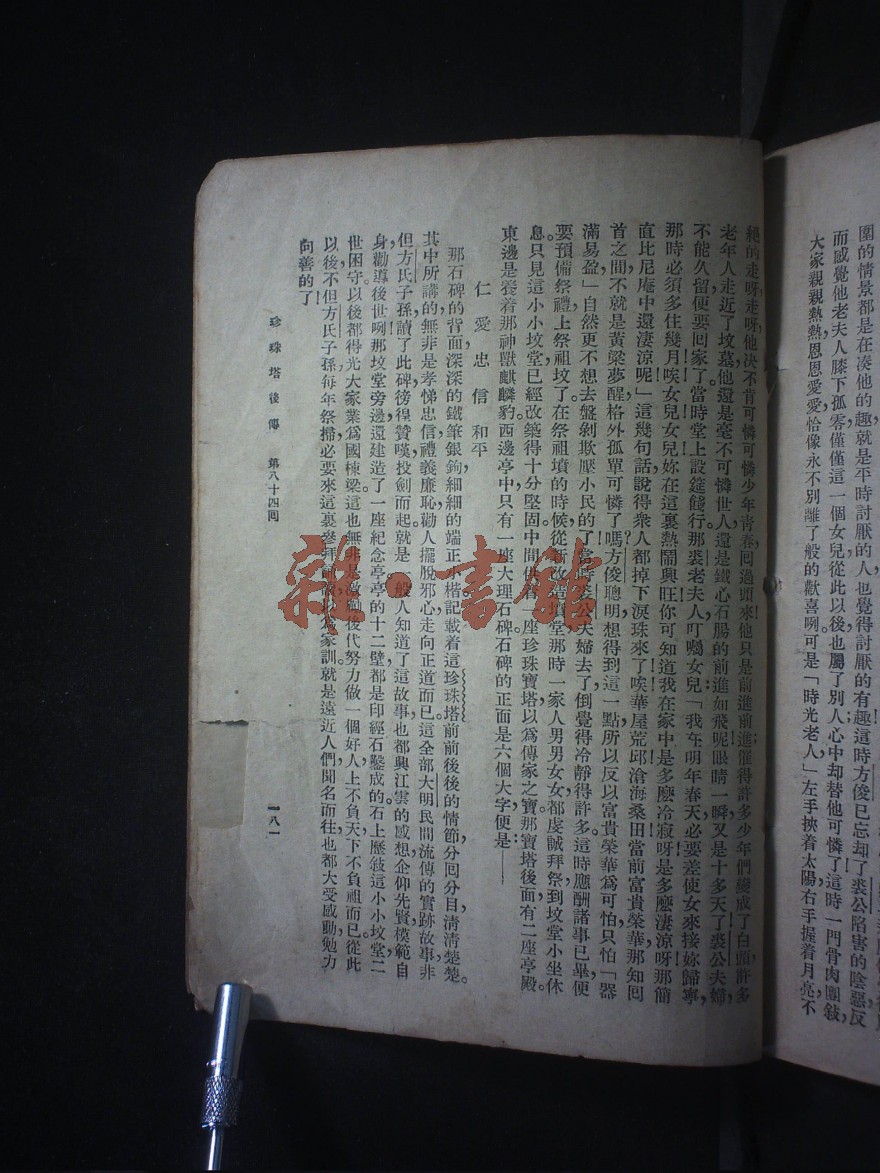 圍的情景都是在湊他的趣就是平時討厭的人也覺得討厭的有趣這時方俊已忘却了裘公陷害的陰惡反
而感覺他老夫人膝下孤零僅僅這一個女兒從此以後也屬了別人心中却替他可憐了這時一門骨肉團敍,
大家親親熱熱恩恩愛愛恰像永不別離了般的歡喜咧。可是「時光老人」左手挾着太陽右手握着月亮不
絕的走呀走呀他決不肯可憐可憐少年靑春回過頭來他只是前進前進催得許多少年們變成了白頭許多
老年人走近了坟墓他還是毫不可憐世人還是鐵心石腸的前進如飛呢眼睛一瞬又是十多天了裘公夫婦,
不能久留便要回家了當時堂上設筵餞行那裘老夫人叮囑女兒:「我在明年春天必要差使女來接妳歸寧,
那時必須多住幾月唉女兒女兒妳在這裏熱鬧興旺你可知道我在家中是多麽冷寂呀是多麽淒涼呀那簡
直比尼庵中還凄涼呢」這幾句話說得衆人都掉下淚珠來了唉華屋荒邱滄海桑田當前富貴榮華那知回
首之間不就是黃粱夢醒格外孤單可憐了嗎?方俊聰明想得到這一點所以反以富貴榮華爲可怕只怕「器
滿易盈」自然更不想去盤剝欺壓小民的了當時裘公夫婦去了倒覺得冷靜得許多。這時應酬諸事已畢便
要預備祭禮上祭祖坟了在祭祖墳的時候從新改造墳堂那時一家人男男女女都虔誠拜祭到坟堂小坐休
息。只見這小小坟堂已經改築得十分堅固中間供養一座珍珠寶塔以爲傳家之寶那寶塔後面有二座亭殿。
東邊是養着那神獸麒麟豹西邊亭中只有一座大理石碑石碑的正面是六個大字便是:——
仁愛忠信和平
那石碑的背面深深的鐵筆銀鉤細細的端正小楷記載着這珍珠塔前前後後的情節分回分目清清楚楚。
其中所講的無非是孝悌忠信禮義廉恥勸人擺脫邪心走向正道而已這全部大明民間流傳的實跡故事非
但方氏子孫讀了此碑徬徨贊嘆投劍而起就是一般人知道了這故事也都興江雲的感想企仰先賢模範自
身勸導後世咧那坟堂旁邊還建造了一座紀念亭亭的十二壁都是印經石鑿成的石上歷敍這小小坟堂二
世困守以後都得光大家業爲國棟梁這也無非是激勵後代努力做一個好人上不負天下不負祖而已從此
以後不但方氏子孫每年祭掃必要來這裏參拜誦讀以爲家訓就是遠近人們聞名而往也都大受感動勉力
向善的了!
珍珠塔後傳 第八十四回
一八一